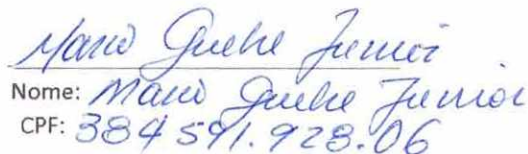 Mario Guehe Junior
Nome: Mario Guehe Junior
CPF: 384 591.928.06